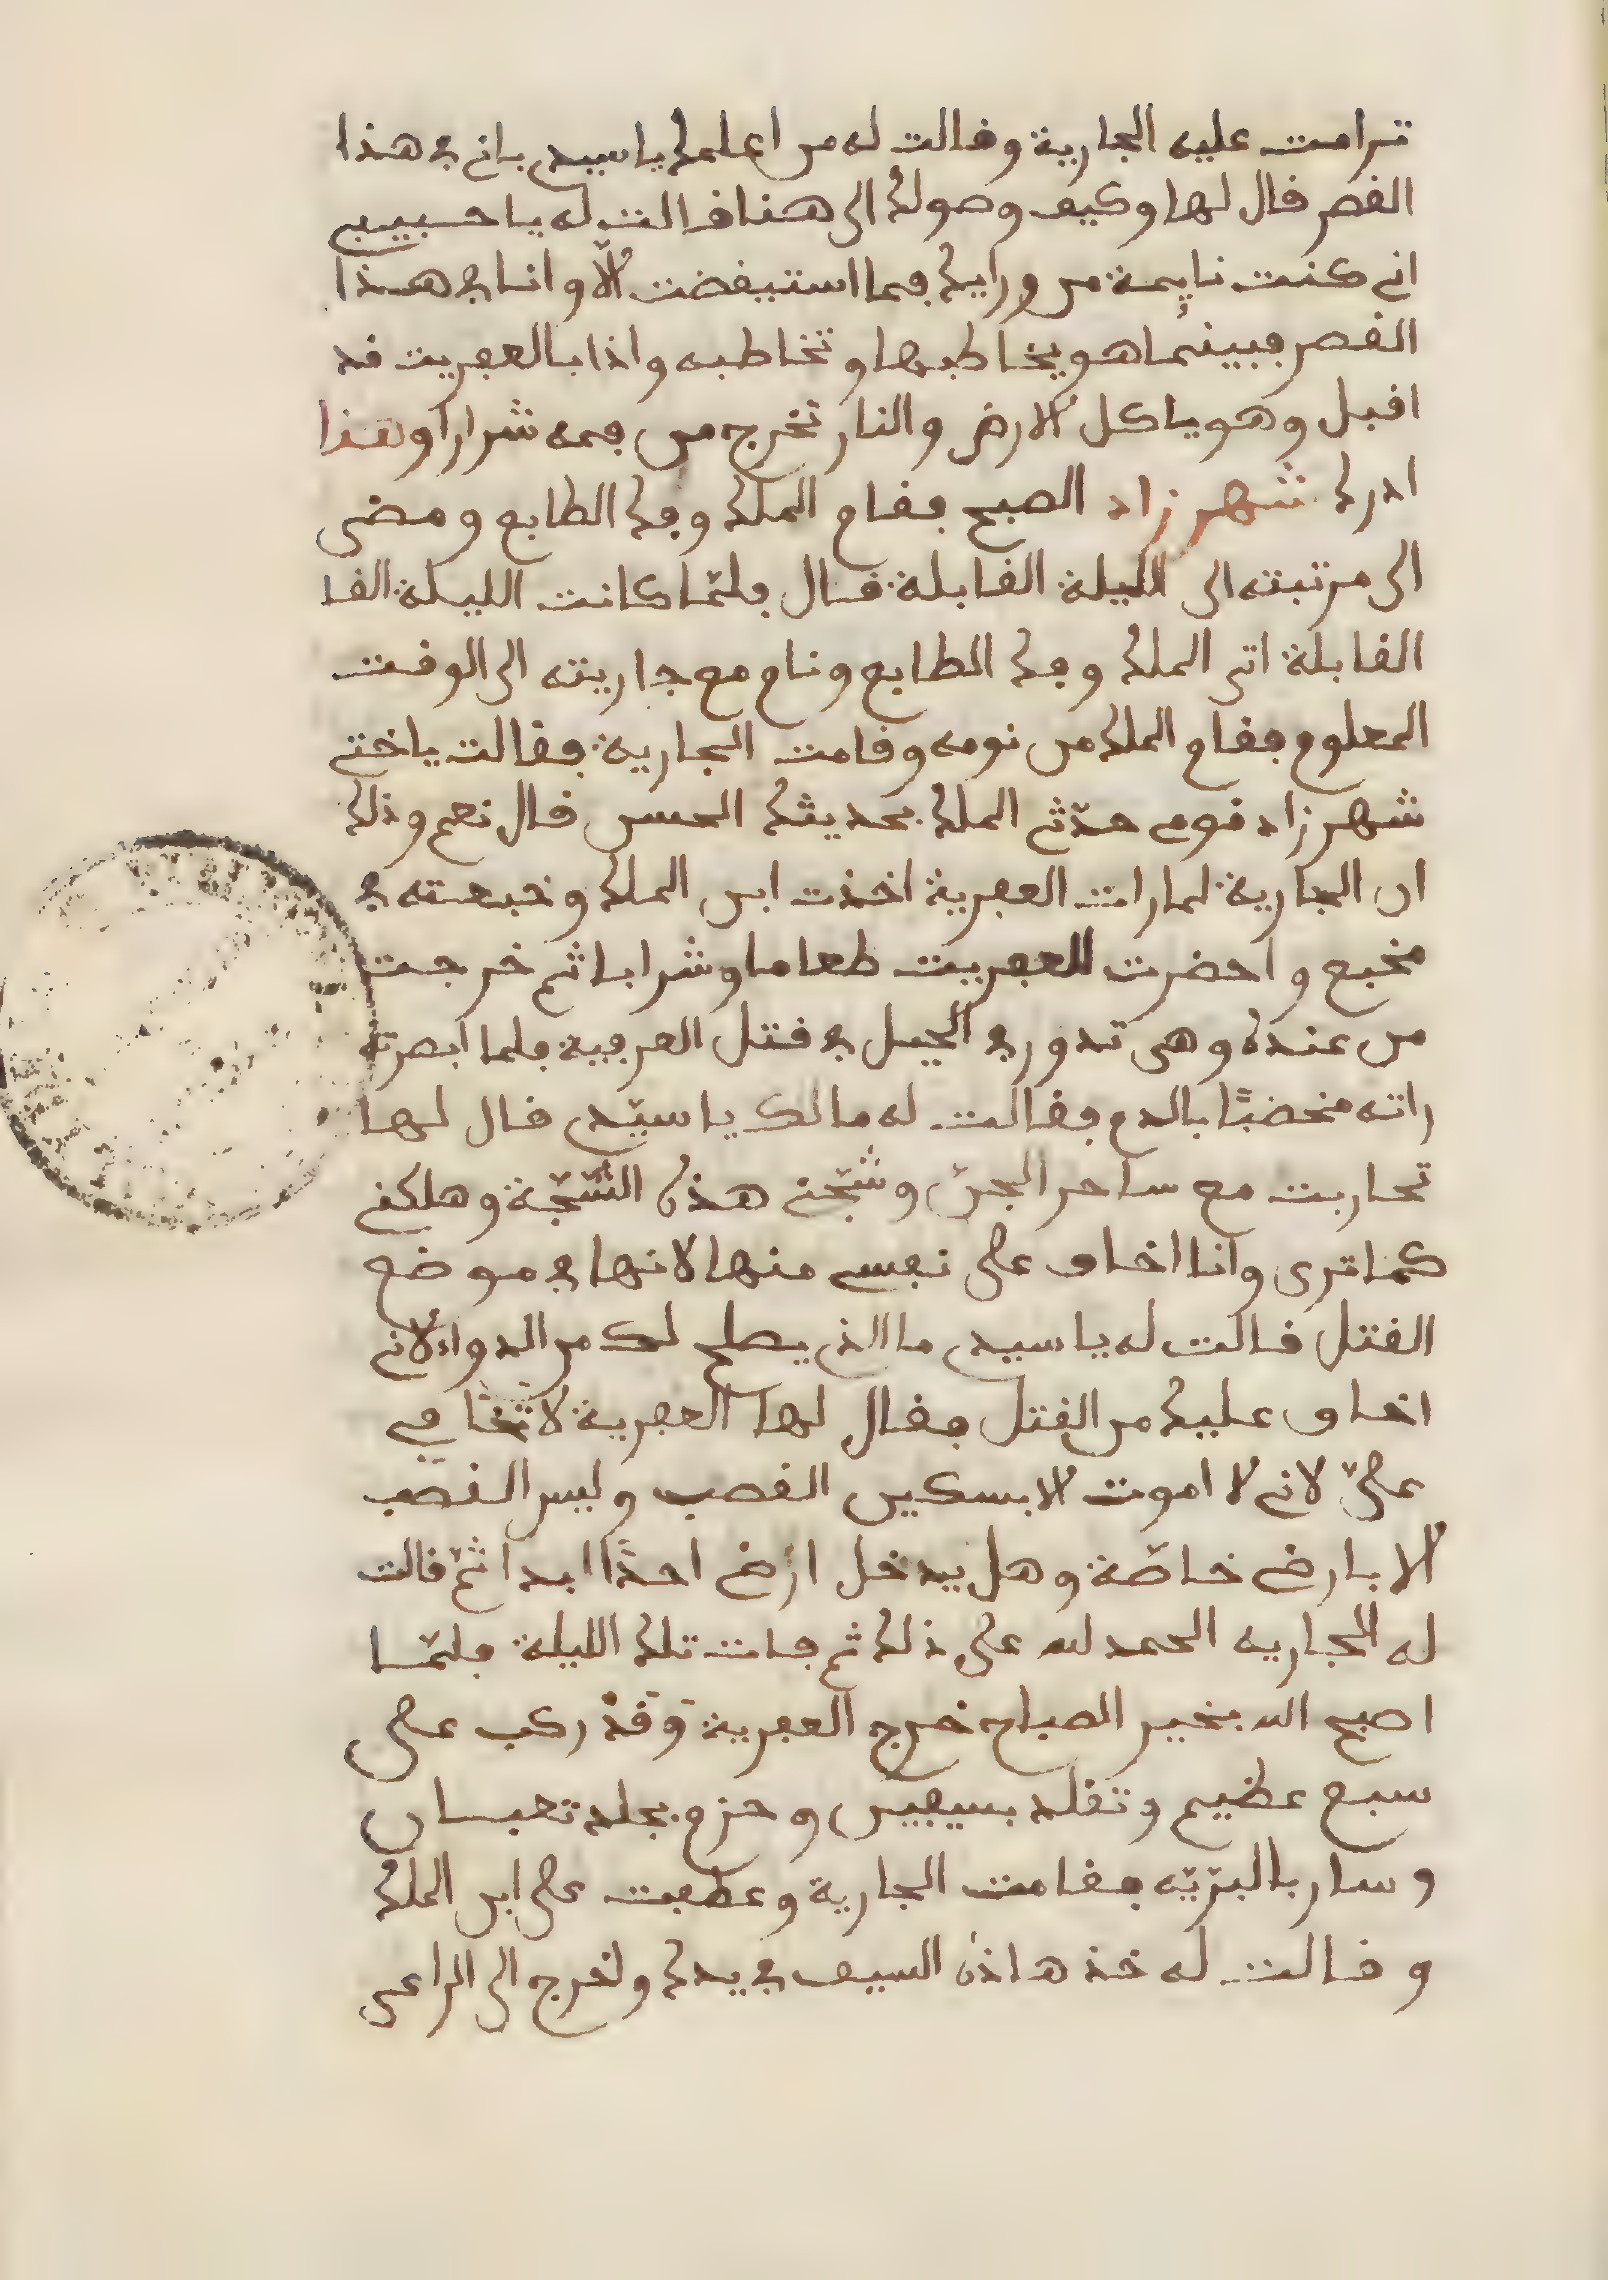 ترامت عليه الجارية وقالت له من اعلمك يا سيدي باني في هذا
القصر قال لها وكيف وصولك الى هنا قالت له يا حبيبي
اني كنت نايمة من ورايك فما استيقضت الّا وانا في هذا
القصر فبينما هو يخاطبها وتخاطبه واذا بالعفريت قد
اقبل وهو ياكل الارض والنار تخرج من فمه شرارا وهنا
ادرك شهرزاد الصبح فقام الملك وفك الطابع ومضى
الى مرتبته الى الليلة القابلة قال فلمّا كانت الليلة القا
القابلة اتى الملك وفك الطابع ونام مع جاريته الى الوقت
المعلوم فقام الملك من نومه وقامت الجارية فقالت ياختي
شهرزاد قومي حدّثي الملك بحديثك الحسن قال نعم وذلك
ان الجارية لما رات العفرية اخذت ابن الملك وخبعته في
مخبع واحضرت للعفريت طعاما وشرابا ثم خرجت
من عنده وهي تدور في الحيل في قتل العرفية فلما ابصرته
راته مخضبًا بالدم فقالت له مالك يا سيّدي قال لها
تحاربت مع ساحر الجنّ وشجّني هذه الشّجّة وهلكني
كما ترى وانا اخاف على نفسي منها لانها في موضع
القتل قالت له يا سيدي ما الذي يصلح لك من الدواء لاني
اخاف عليك من القتل فقال لها العفرية لا تخافي
عليّ لاني لا اموت الا بسكين القصب وليس القصب
الا بارض خاصّة وهل يدخل ارض احدًا ابدا ثمّ قالت
له الجاريه الحمد لله على ذلك ثم فات تلك الليلة فلمّا
اصبح الله بخير الصباح خرج العفرية وَقَدْ ركب على
سبع عظيم وتقلد بسيفين وحزم بجلد تعبان
وسار بالبرّيّه فقامت الجارية وعطفت على ابن الملك
وقالت له خذ هاذه السيف في يدك ولخرج الى الراعي